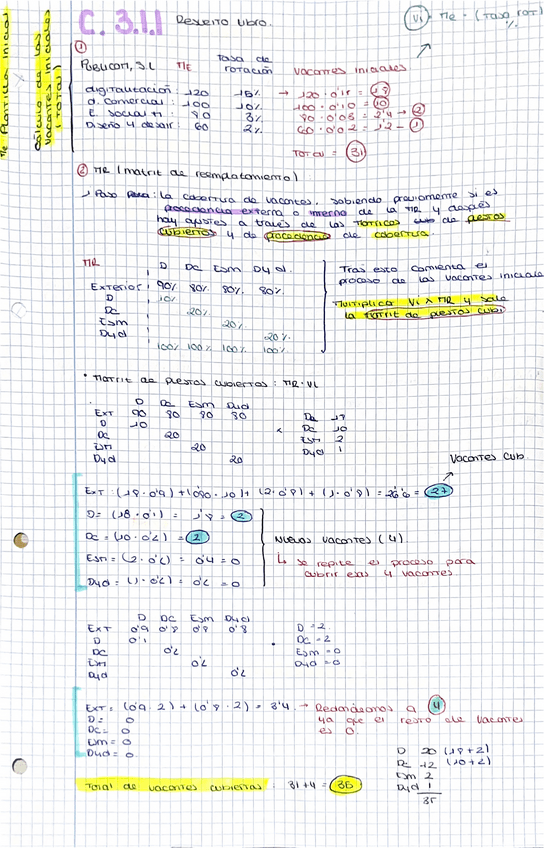 C. 3.1.1 Resuelto libro.
Vi = Me · (Tasa rot) %
Me Plantilla inicial
Cálculo de las vacantes iniciales (TOTAL)
①
Publicom, S.L Me Tasa de rotación Vacantes iniciales
digitalización 120 15% → 120 · 0'15 = 18
d. Comercial : 100 10% 100 · 0'10 = 10
E. Social M : 80 3% 80 · 0'03 = 2'4 → 2
Diseño y desarr : 60 2% 60 · 0'02 = 1'2 - 1
TOTAL = 31
② MR (matriz de reemplazamiento)
la cobertura de vacantes, sabiendo previamente si es
procedencia externa o interna de la MR y después
hay ajustes a través de las matrices de puestos
cubiertos y de procedencia de cobertura.
MR D DC Esm Dyd.
Exterior 90% 80% 80% 80%
D 10%
DC 20%
Esm 20%
Dyd 20%
100% 100% 100% 100%
Tras esto comienza el
proceso de las vacantes iniciales
Multiplico Vi x MR y sale
la matriz de puestos cubi
• Matriz de puestos cubiertos : MR · Vi
D DC Esm Dyd
Ext 90 80 80 80
D 10
DC 20
Esm 20
Dyd 20
DC 10
Esm 2
Dyd 1
Vacantes cub.
Ext : (18 · 0'9) + (0'80 · 10) + (2 · 0'8) + (1 · 0'8) = 26'6 = 27
D = (18 · 0'1) = 1'8 = 2
DC = (10 · 0'2) = 2
Esm = (2 · 0'2) = 0'4 = 0
Dyd = (1 · 0'2) = 0'2 = 0
Nuevas vacantes (4).
↳ se repite el proceso para
cubrir esas 4 vacantes.
D DC Esm Dyd
Ext 0'9 0'8 0'8 0'8
D 0'1
DC 0'2
Esm 0'2
Dyd 0'2
D = 2
DC = 2
Esm = 0
Dyd = 0
Ext = (0'9 · 2) + (0'8 · 2) = 3'4 → Redondeamos a 4
ya que el resto de vacantes
es 0.
D = 0
DC = 0
Esm = 0
Dyd = 0
D 20 (18+2)
DC 12 (10+2)
Esm 2
Dyd 1
35
Total de vacantes cubiertas : 31 + 4 = 35